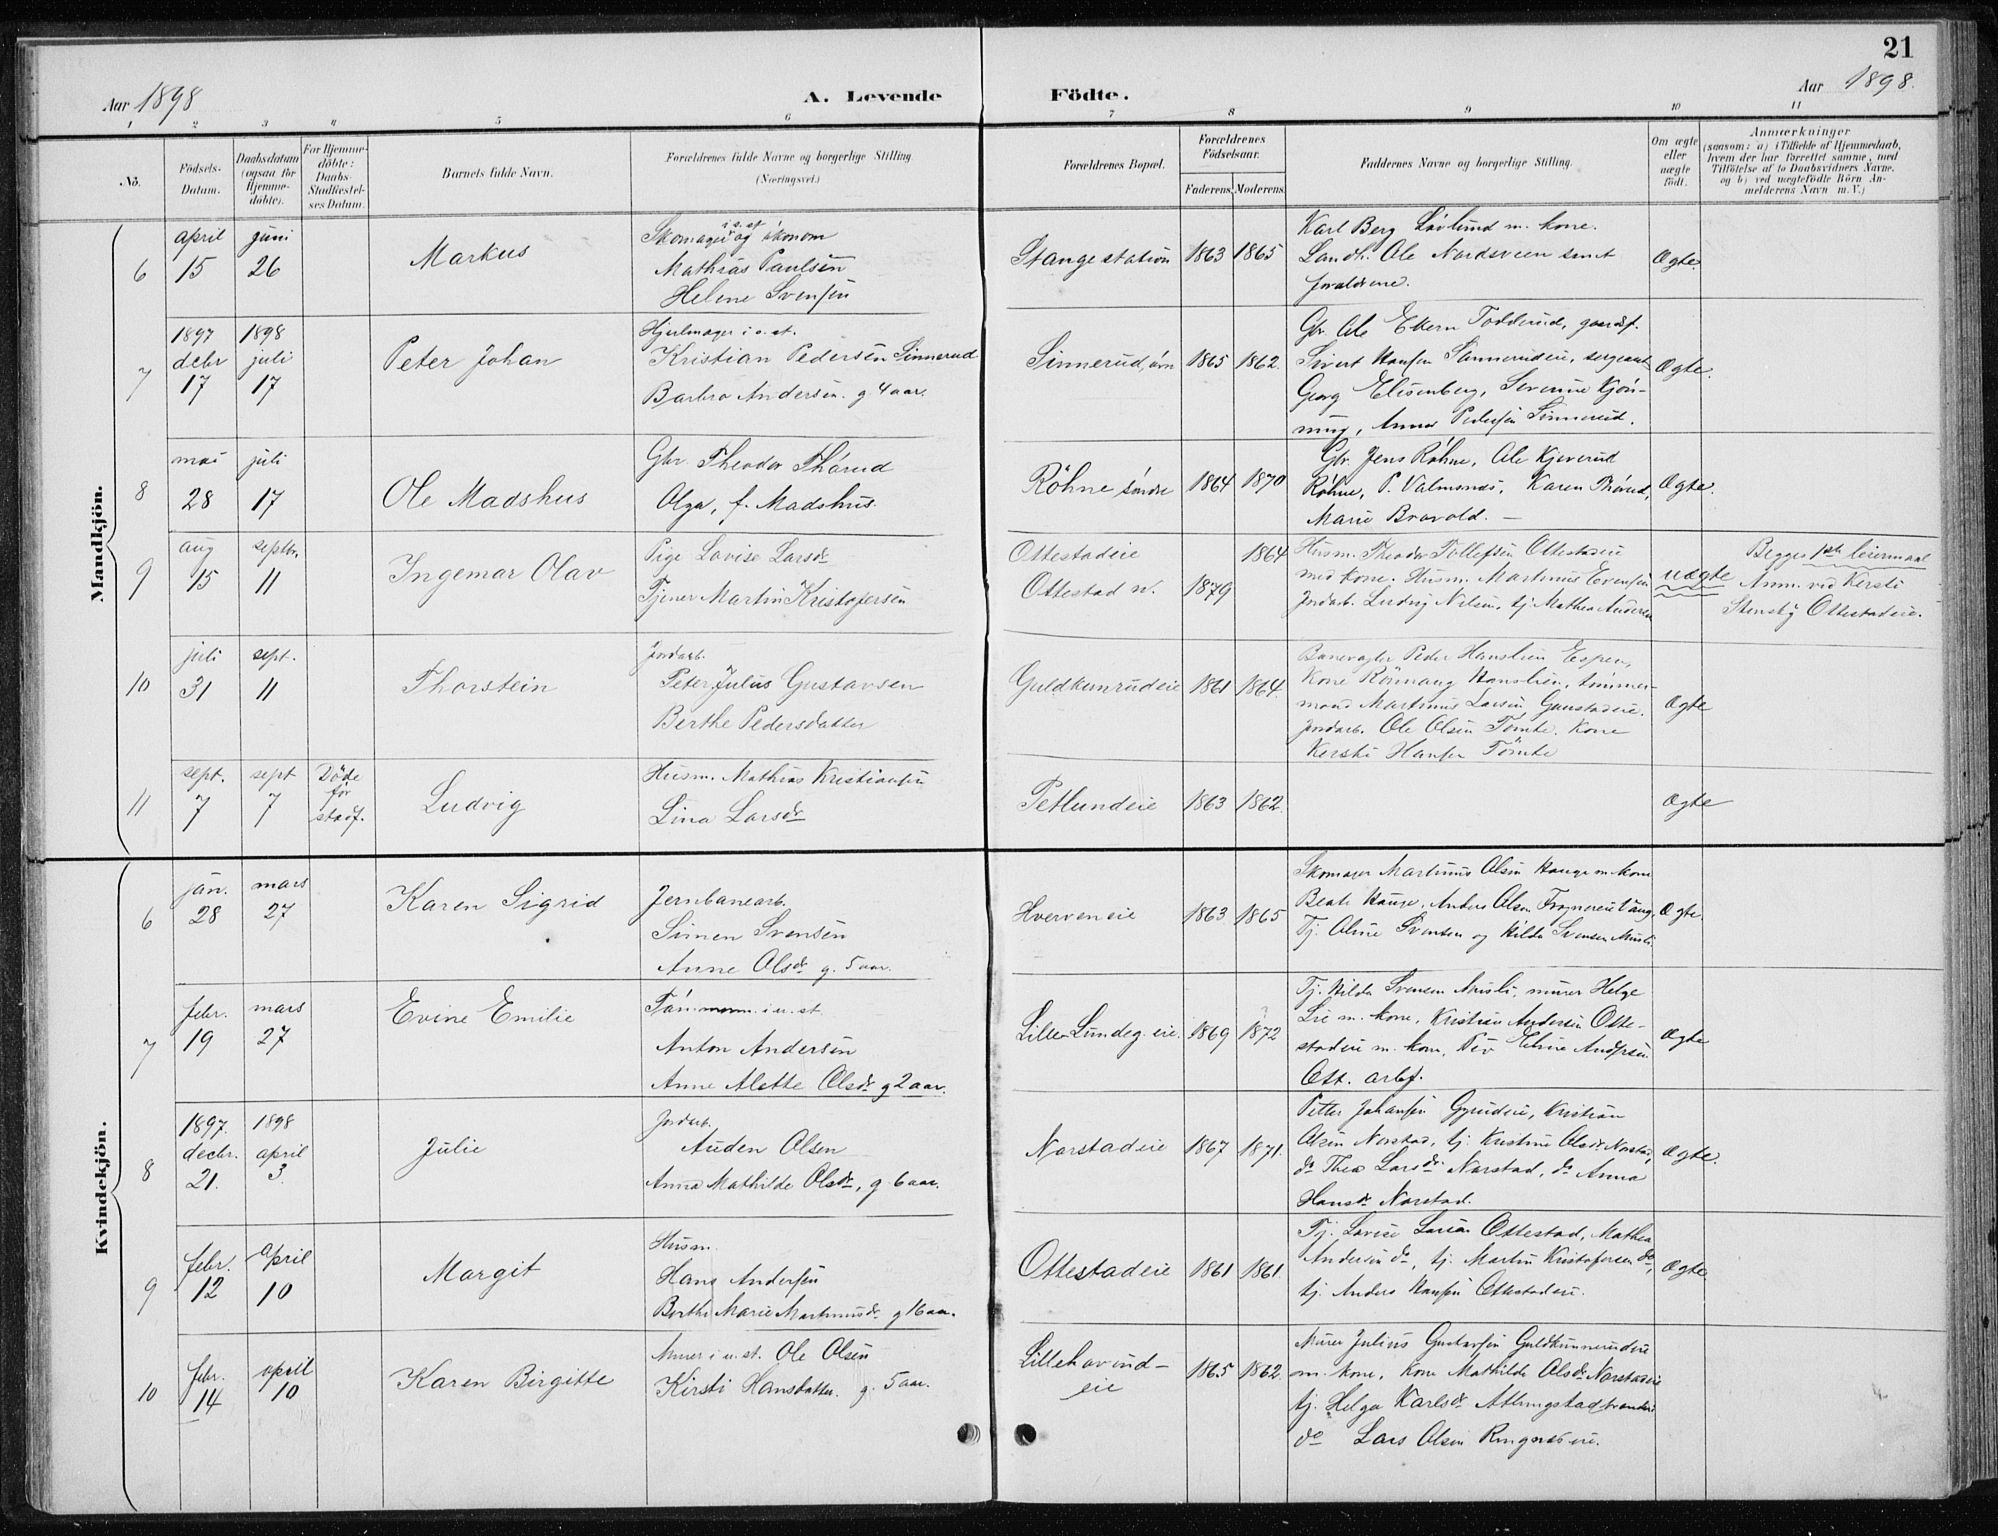 21
Aar 1898
A. Levende Födte.
Aar 1898.
1 2 3 4 5 6 7 8 9 10 11
No.
Födsels-
Datum.
Daabsdatum
(ogsaa for
Hjemme-
döbte).
For Hjemme-
döbte:
Daabs-
Stadfæstel-
ses Datum.
Barnets fulde Navn.
Forældrenes fulde Navne og borgerlige Stilling
(Næringsvei.)
Forældrenes Bopæl.
Forældrenes
Födselsaar.
Faderens. Moderens.
Faddernes Navne og borgerlige Stilling.
Om ægte
eller
uægte
födt.
Anmærkninger
(saasom: a) i Tilfælde af Hjemmedaab,
hvem der har forrettet samme, med
Tilföielse af to Daabsvidners Navne.
og b) ved uægtefödte Börn An-
melderens Navn m. V.)
Mandkjön.
6
april
15
juni
26
Markus
i s. st
Skomager og økonom
Mathias Paulsen
Helene Svensen
Stange station
1863 1865
Karl Berg Løvlund m. kone.
Landh. Ole Nordsveen samt
forældrene.
Ægte.
7
1897
debr
17
1898
juli
17
Peter Johan
Hjulmager i s. st.
Kristian Pedersen Sinnerud
Barbro Andersen. g. 4 aar.
Sinnerud, øvn
1865 1862.
Gbr. Ole Ekern Todderud, gaardsf.
Sivert Hansen Sannerudeie, sergeant
Georg Elisenberg, Severine Kjøn-
ning, Anna Pedersen Sinnerud.
Ægte.
8
mai
28
juli
17
Ole Madshus
Gbr. Theodor Thórud
Olga, f. Madshus.
Röhne søndre
1864 1870
Gbr. Jens Røhne, Ole Kjeverud
Røhne, P. Valmsnæs, Karen Thórud,
Marie Bravold. —
Ægte.
9
aug
15
septbr.
11
Ingemar Olav
Pige Lovise Larsdr
Tjener Martin Kristofersen
Ottestadeie
Ottestad n.
1864
1879
Husm. Theodor Tollefsen Ottestadeie
med kone. Husm. Martinus Evensen
Jordarb. Ludvig Nilsen, tj. Mathea Andersen
uægte
Begges 1ste leiermaal
Anm. ved Kersti
Stensby Ottestadeie.
10
juli
31
sept.
11
Thorstein
Jordarb.
Peter Julius Gustavsen
Berthe Pedersdatter
Guldkunrudeie
1861 1864.
Banevogter Peder Hanslien Espen,
Kone Rønnaug Hanslien, tømmer-
mand Martinus Larsen Gunstadeie.
Jordarb. Ole Olsen Tømte. Kone
Kersti Hansen Tömte
Ægte
11
sept.
7
sept
7
Döde
før
stadf.
Ludvig
Husm. Mathias Kristiansen
Lina Larsdr
Petlundeie
1863 1862.
Ægte
Kvindekjön.
6
jan.
28
mars
27
Karen Sigrid
Jernbanearb.
Simen Svensen
Anne Olsdr g. 5 aar.
Hverveneie
1863 1865
Skomager Martinus Olsen Hauge m. kone
Beate Hauge, Anders Olsen Frognereie Vang,
Tj. Oline Svensen og Hilda Svensen Musli
Ægte
7
febr.
19
mars
27
Evine Emilie
Tómmerm. i u. st.
Anton Andersen
Anne Alette Olsdr g 2 aar.
Lille Lundeg. eie.
1869 1872
Tj. Hilda Svensen Musli, murer Helge
Lie m. kone, Kristian Andersen Otte-
stadeie m. kone, Elvine Andersen
Ott. arbf.
Ægte
8
1897.
decbr.
21.
1898
april
3.
Julie
Jordarb.
Auden Olsen
Anna Mathilde Olsdr, g. 6 aar.
Norstadeie
1867 1871.
Petter Johansen Gyrudeie, Kristian
Olsen Norstad, tj. Kristine Olsdr Norstad,
do Thea Larsdr Norstad, do Anna
Hansdr Norstad.
Ægte.
9
febr.
12
april
10
Margit
Husm.
Hans Andersen
Berthe Marie Martinusdr g 16 aar.
Ottestadeie
1861 1861.
Tj. Lovise Larsen Ottestad, Mathea
Andersen do, tj. Martin Kristofersen do,
tj. Anders Hansen Ottestadeie.
Ægte
10
febr.
14
april
10
Karen Birgitte
Murer i u. st. Ole Olsen
Kirsti Hansdatter. g. 5 aar.
Lillehovind-
eie
1865 1862.
Murer Julius Gustavsen Guldkunnerudeie
m. kone, Kone Mathilde Olsdr Norstadeie
tj. Helga Karlsdr
do Lars Olsen Ringnæseie.